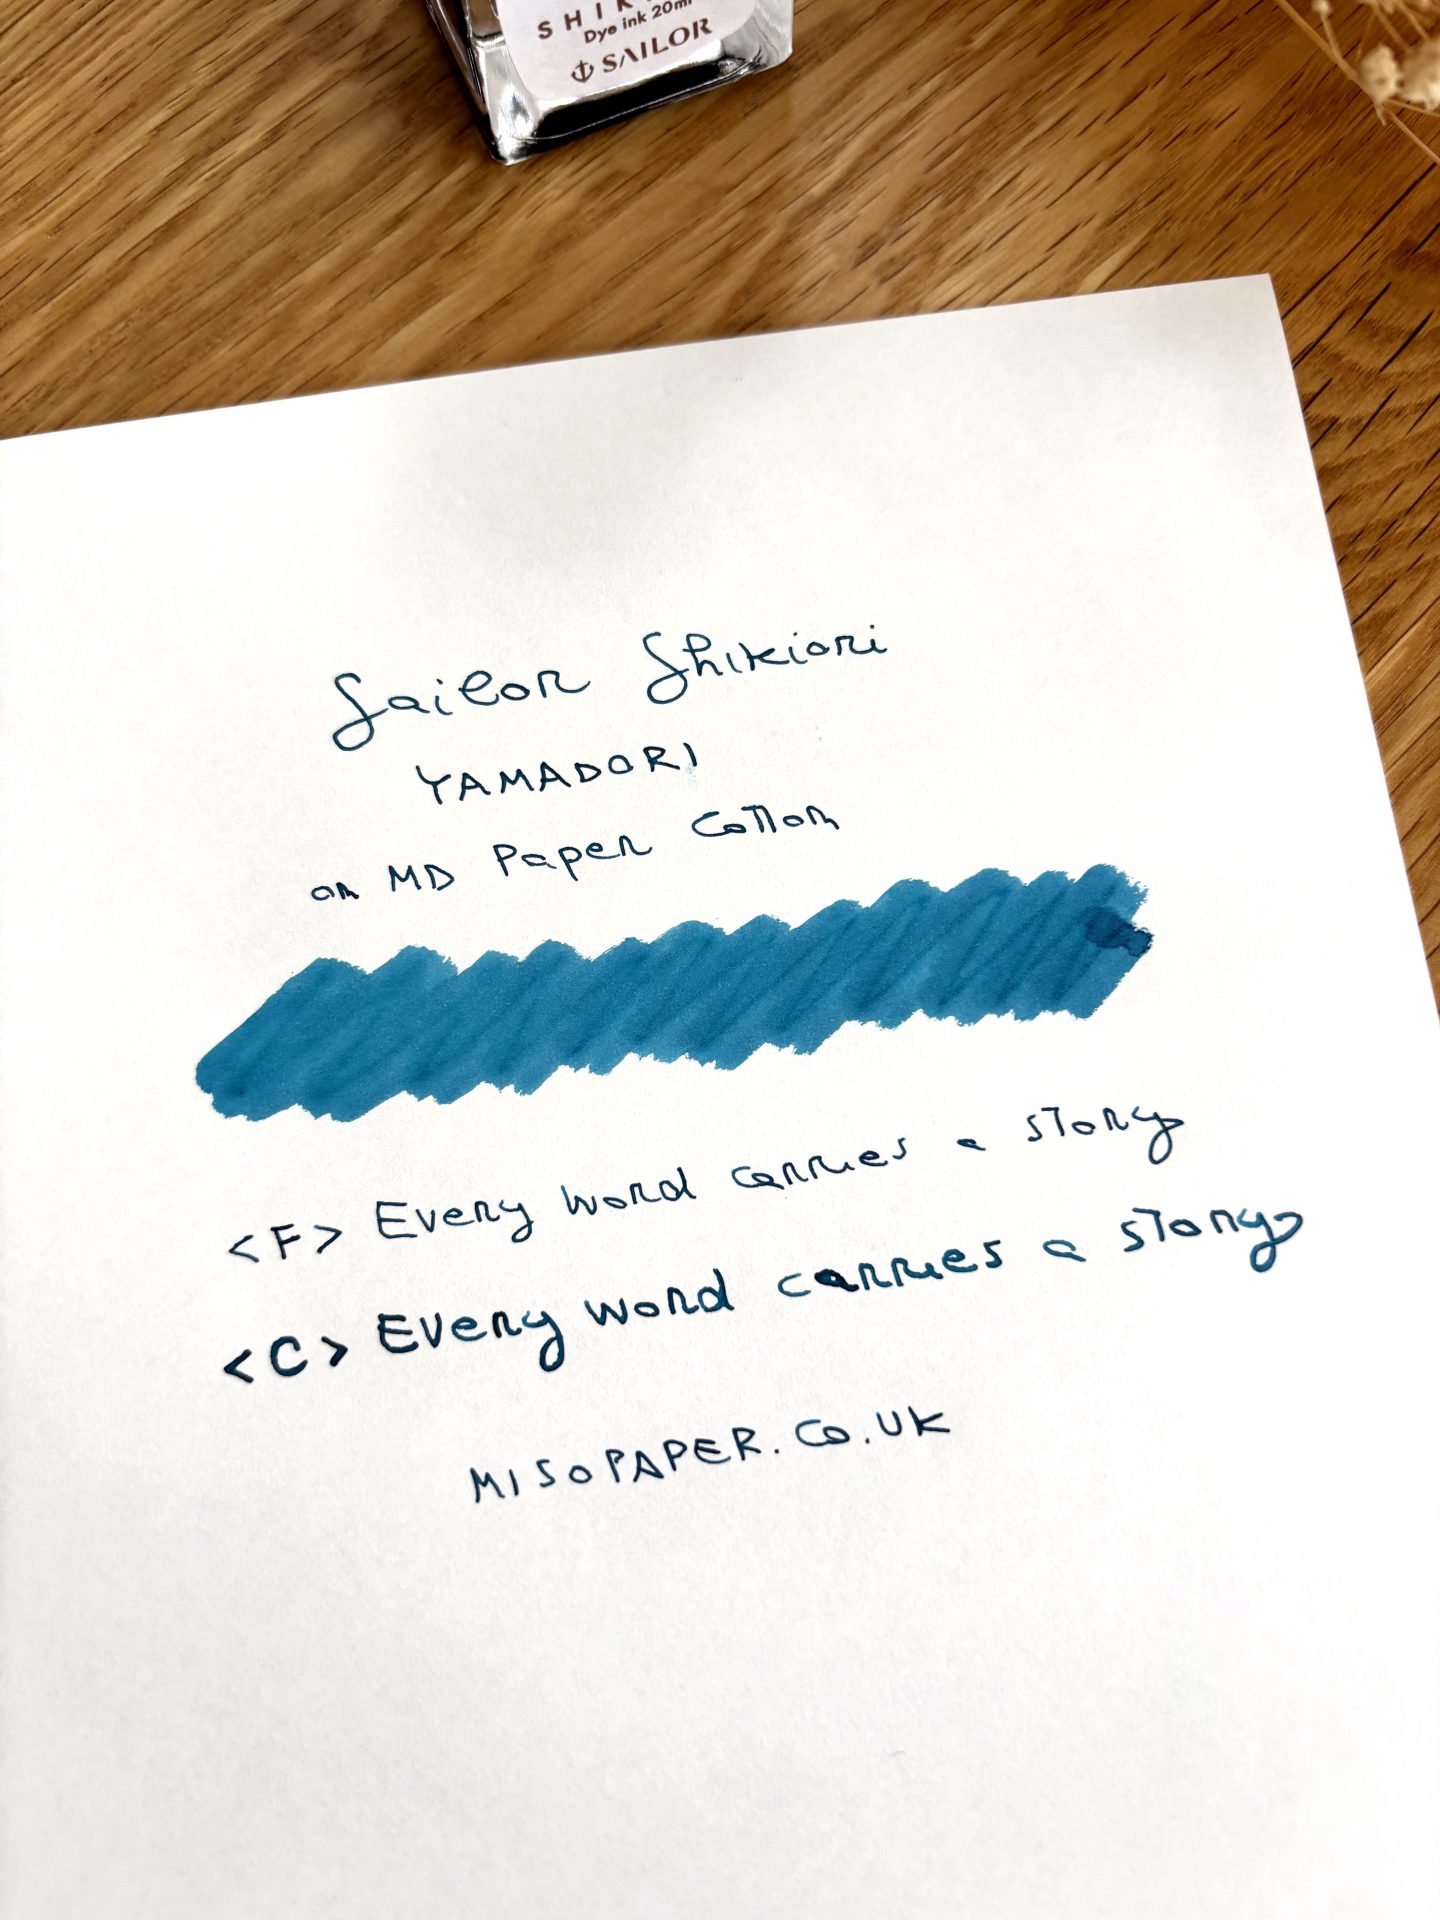 Dye ink 20ml
SAILOR
Sailor Shikiori
YAMADORI
on MD Paper Cotton
<F> Every word carries a story
<C> Every word carries a story
MISOPAPER.CO.UK